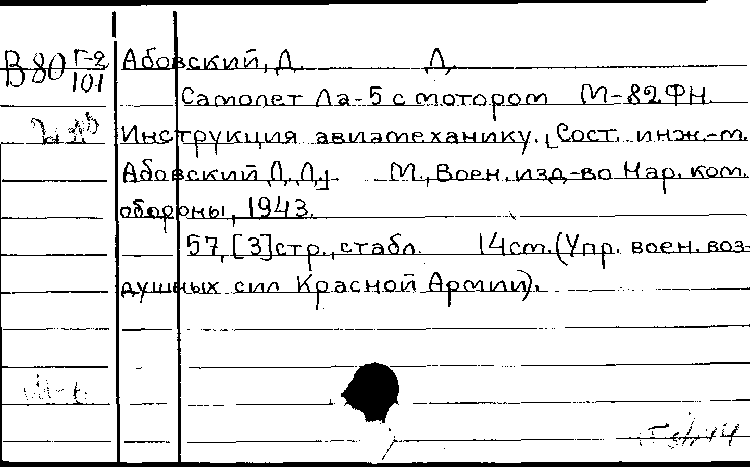 В 80 Г-2/101
Абовский, Д. Д.
Самолет Ла-5 с мотором М-82ФН.
Инструкция авиамеханику. [Сост. инж.-м.
Абовский Д. Д.] М., Воен. изд-во Нар. ком.
обороны, 1943.
57, [3] стр., с табл. 14 см. (Упр. воен. воз-
душных сил Красной Армии).